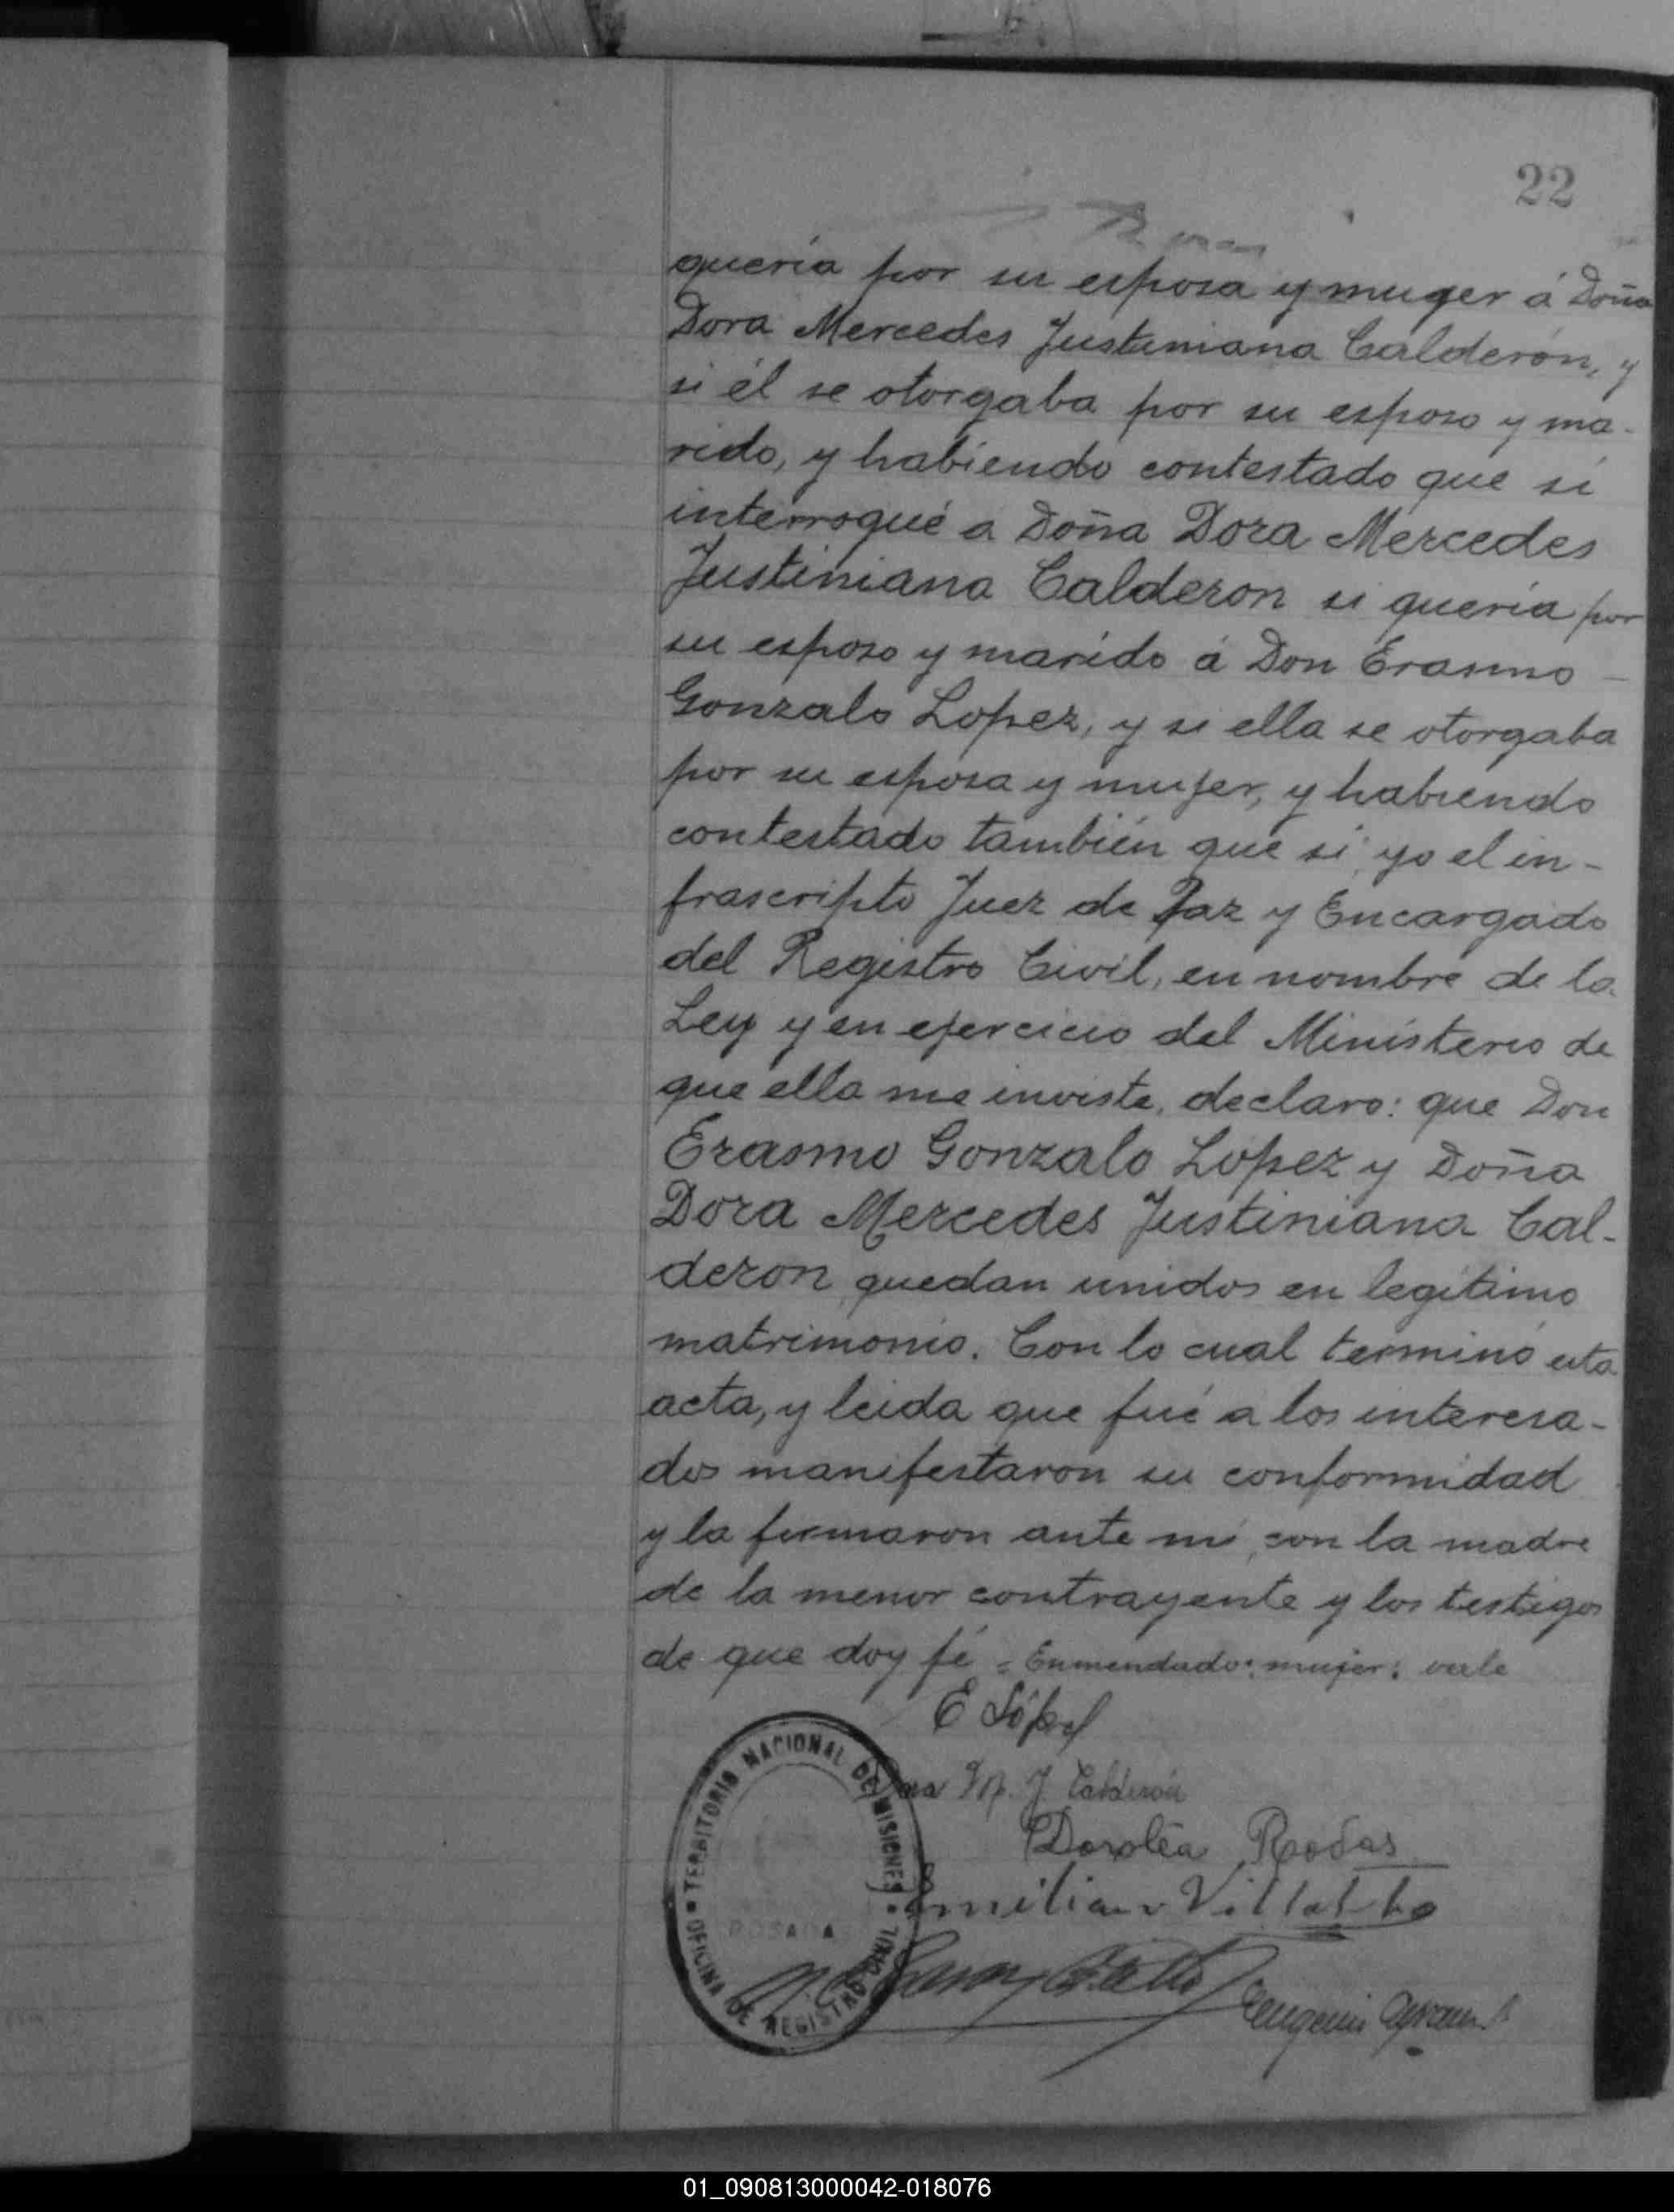 22
quería por su esposa y muger á Doña
Dora Mercedes Justiniana Calderón, y
si él se otorgaba por su esposo y ma-
rido, y habiendo contestado que si
interrogué a Doña Dora Mercedes
Justiniana Calderon si quería por
su esposo y marido á Don Erasmo -
Gonzalo Lopez, y si ella se otorgaba
por su esposa y mujer, y habiendo
contestado también que si, yo el in-
frascripto Juez de Paz y Encargado
del Registro Civil, en nombre de la
Ley y en ejercicio del Ministerio de
que ella me inviste, declaro: que Don
Erasmo Gonzalo Lopez y Doña
Dora Mercedes Justiniana Cal-
deron quedan unidos en legítimo
matrimonio. Con lo cual terminó esta
acta, y leida que fué a los interesa-
dos manifestaron su conformidad
y la firmaron ante mi, con la madre
de la menor contrayente y los testigos
de que doy fé = Enmendado: mujer: vale
E López
Dora M. J. Calderón
Dorotea Rodas
Emiliano Villalba
Eugenio
TERRITORIO NACIONAL DE MISIONES
OFICINA DE REGISTRO CIVIL
POSADA
01_090813000042-018076